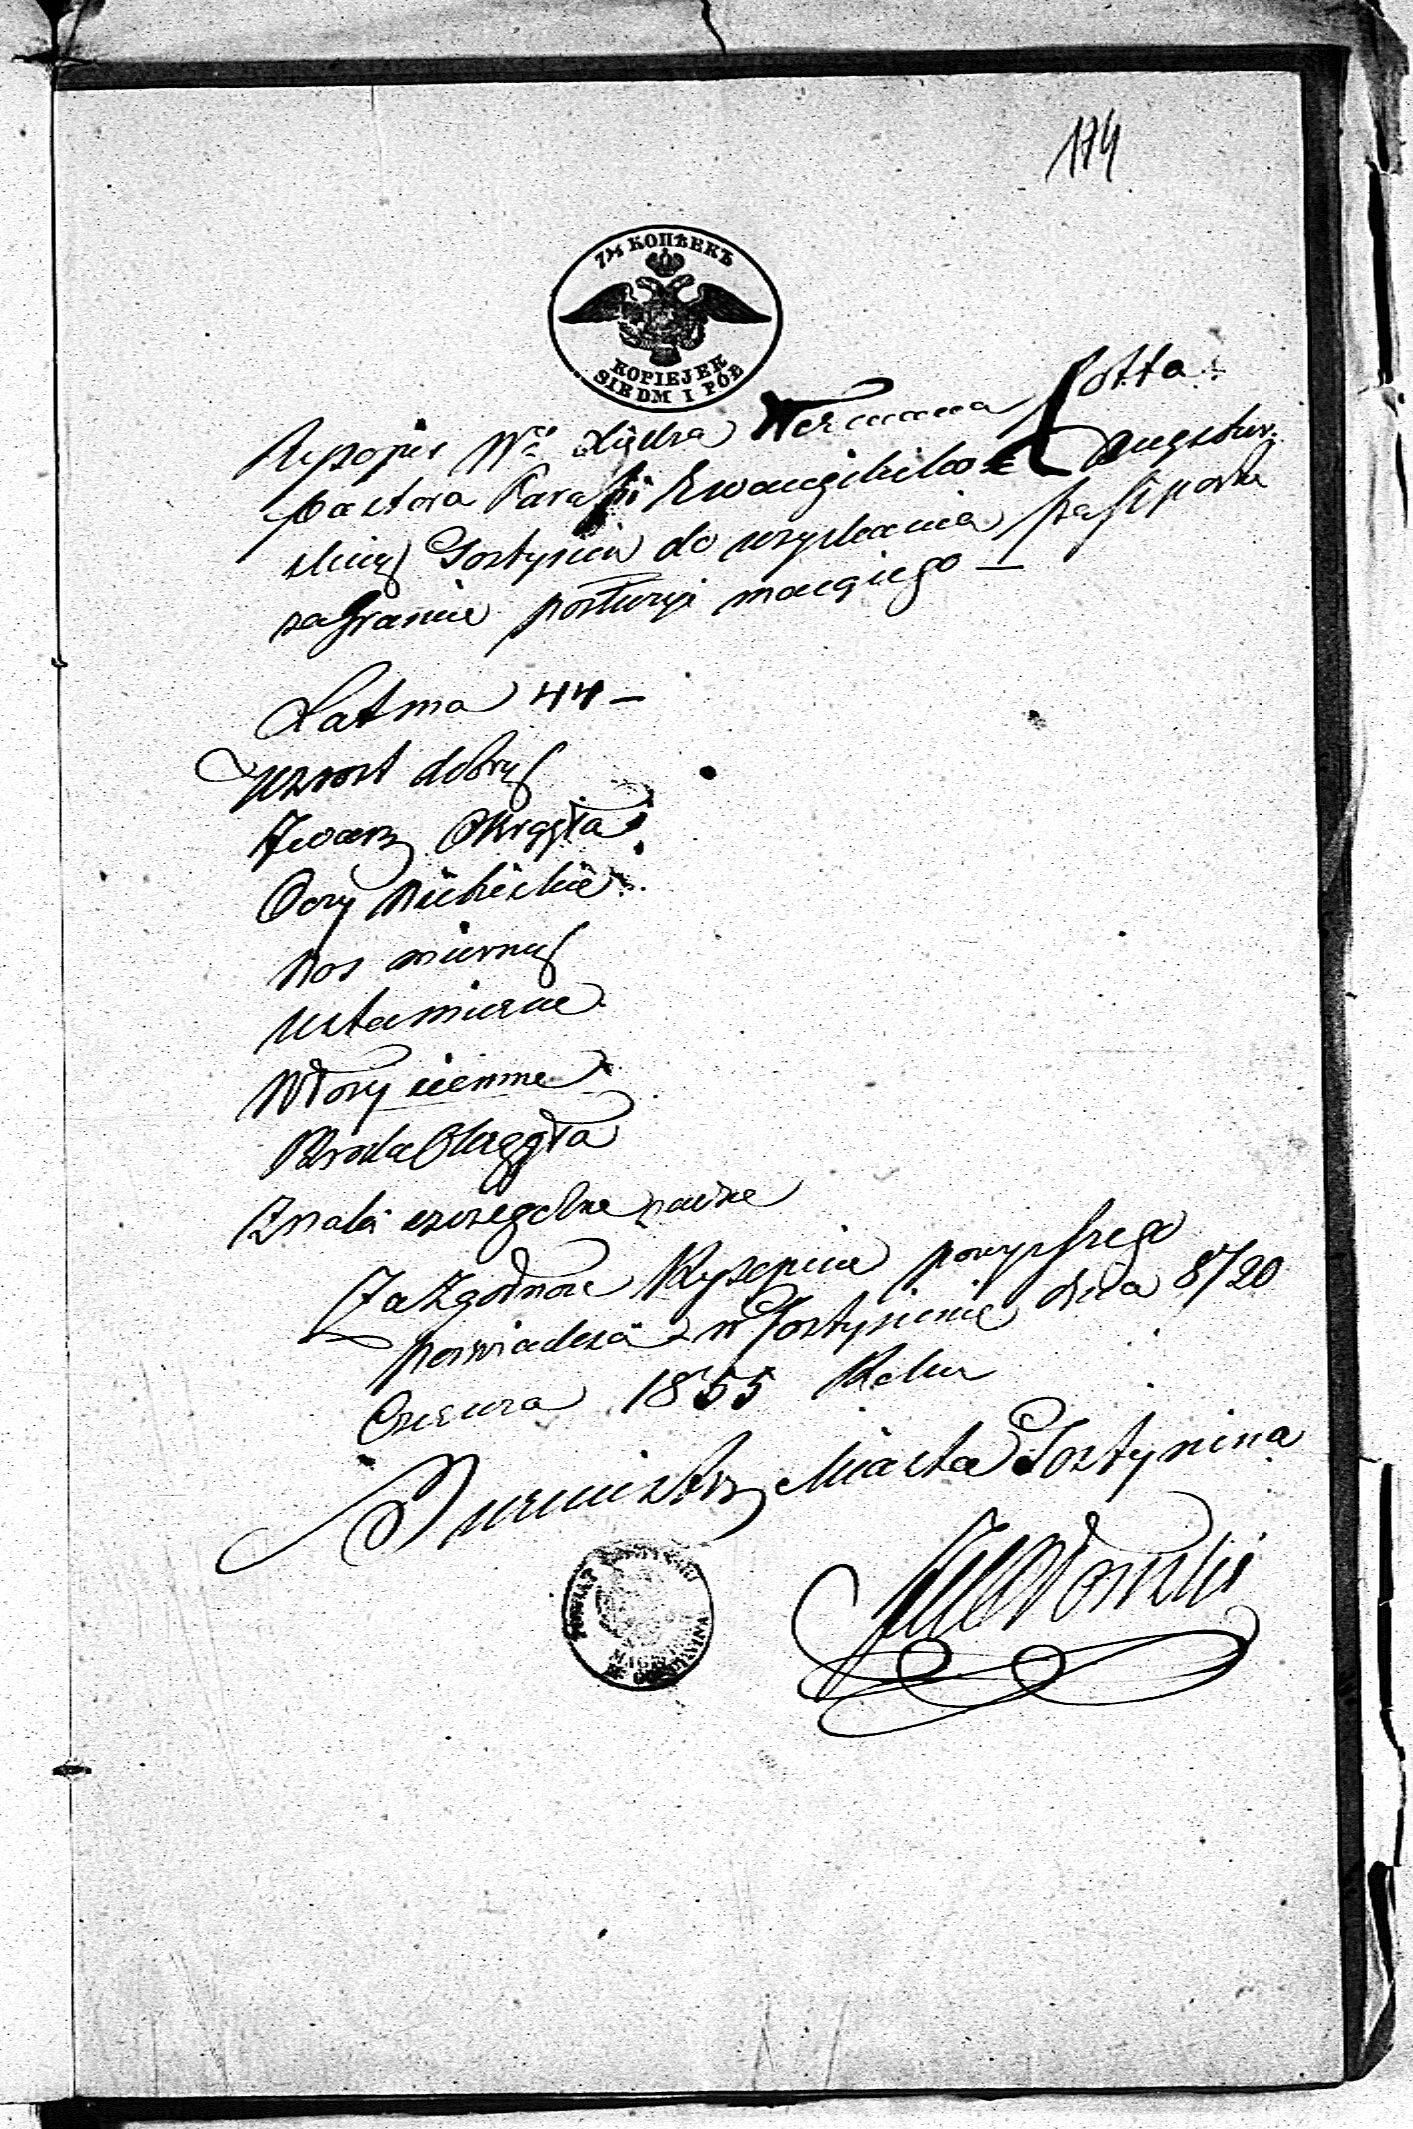 174
7½ КОПѢЕКЪ
KOPIEJEK
SIEDM I PÓŁ
Rysopis Wgo Xiędza Hermana Rotta
Pastora Parafii Ewangielicko Augsbur
skiey Gostynin do uzyskania Paszportu
zagranicę posłużyć mającego —
Lat ma 44 —
Wzrost dobry
Twarz Okrągła
Oczy Niebieskie
Nos mierny
Usta mierne
Włosy ciemne
Broda Okrągła
Znaki szczególne żadne
Za Zgodność Rysopisu powyższego
poświadcza w Gostyninie dnia 8/20
Czerwca 1855 Roku
Burmistrz Miasta Gostynina
POWIAT
MAGIS
GOSTYNINA